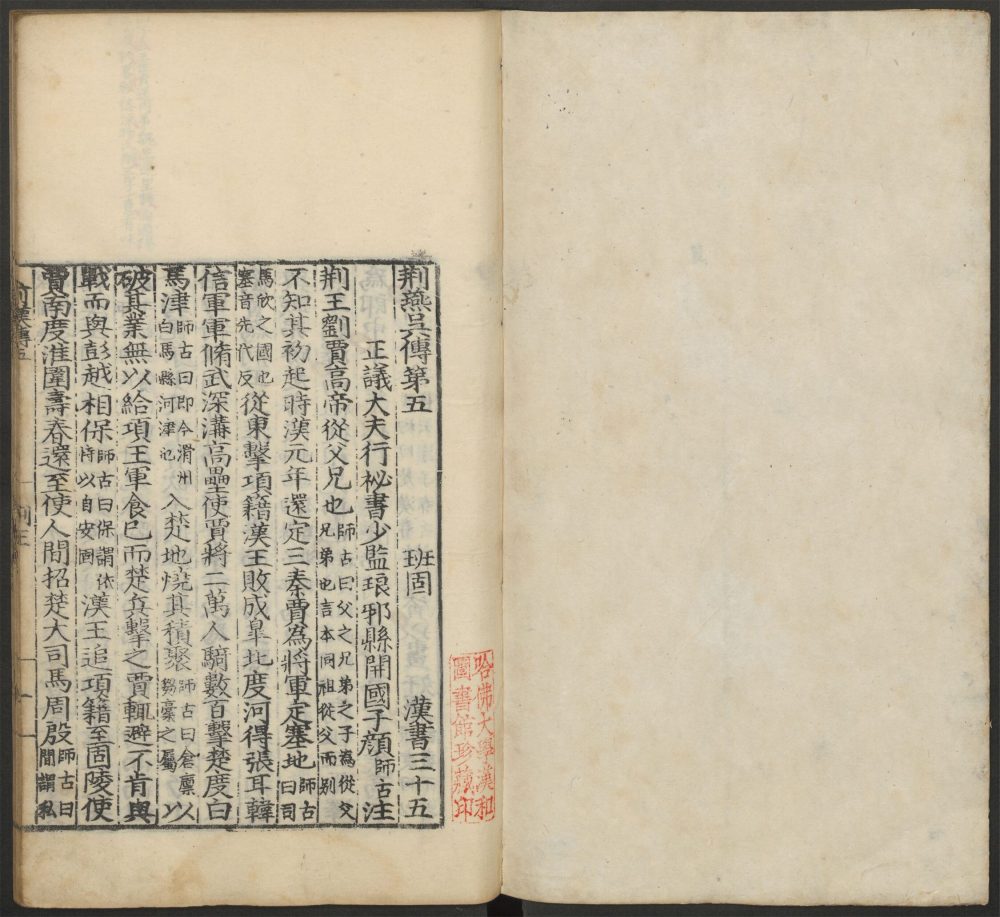 荆燕吳傳第五 班固 漢書三十五
正議大夫行祕書少監琅邪縣開國子顔師古注
荆王劉賈高帝從父兄也師古曰父之兄弟之子爲從父兄弟也言本同祖從父而别
不知其初起時漢元年還定三秦賈爲將軍定塞地師古曰司
馬欣之國也塞音先代反從東擊項籍漢王敗成皐北度河得張耳韓
信軍軍脩武深溝高壘使賈將二萬人騎數百擊楚度白
馬津師古曰即今滑州白馬縣河津也入楚地燒其積聚師古曰倉廩芻稾之屬以
破其業無以給項王軍食已而楚兵擊之賈輒避不肯與
戰而與彭越相保師古曰保謂依恃以自安固漢王追項籍至固陵使
賈南度淮圍壽春還至使人間招楚大司馬周殷師古曰間謂私
前漢傳五
哈佛大學漢和
圖書館珍藏印